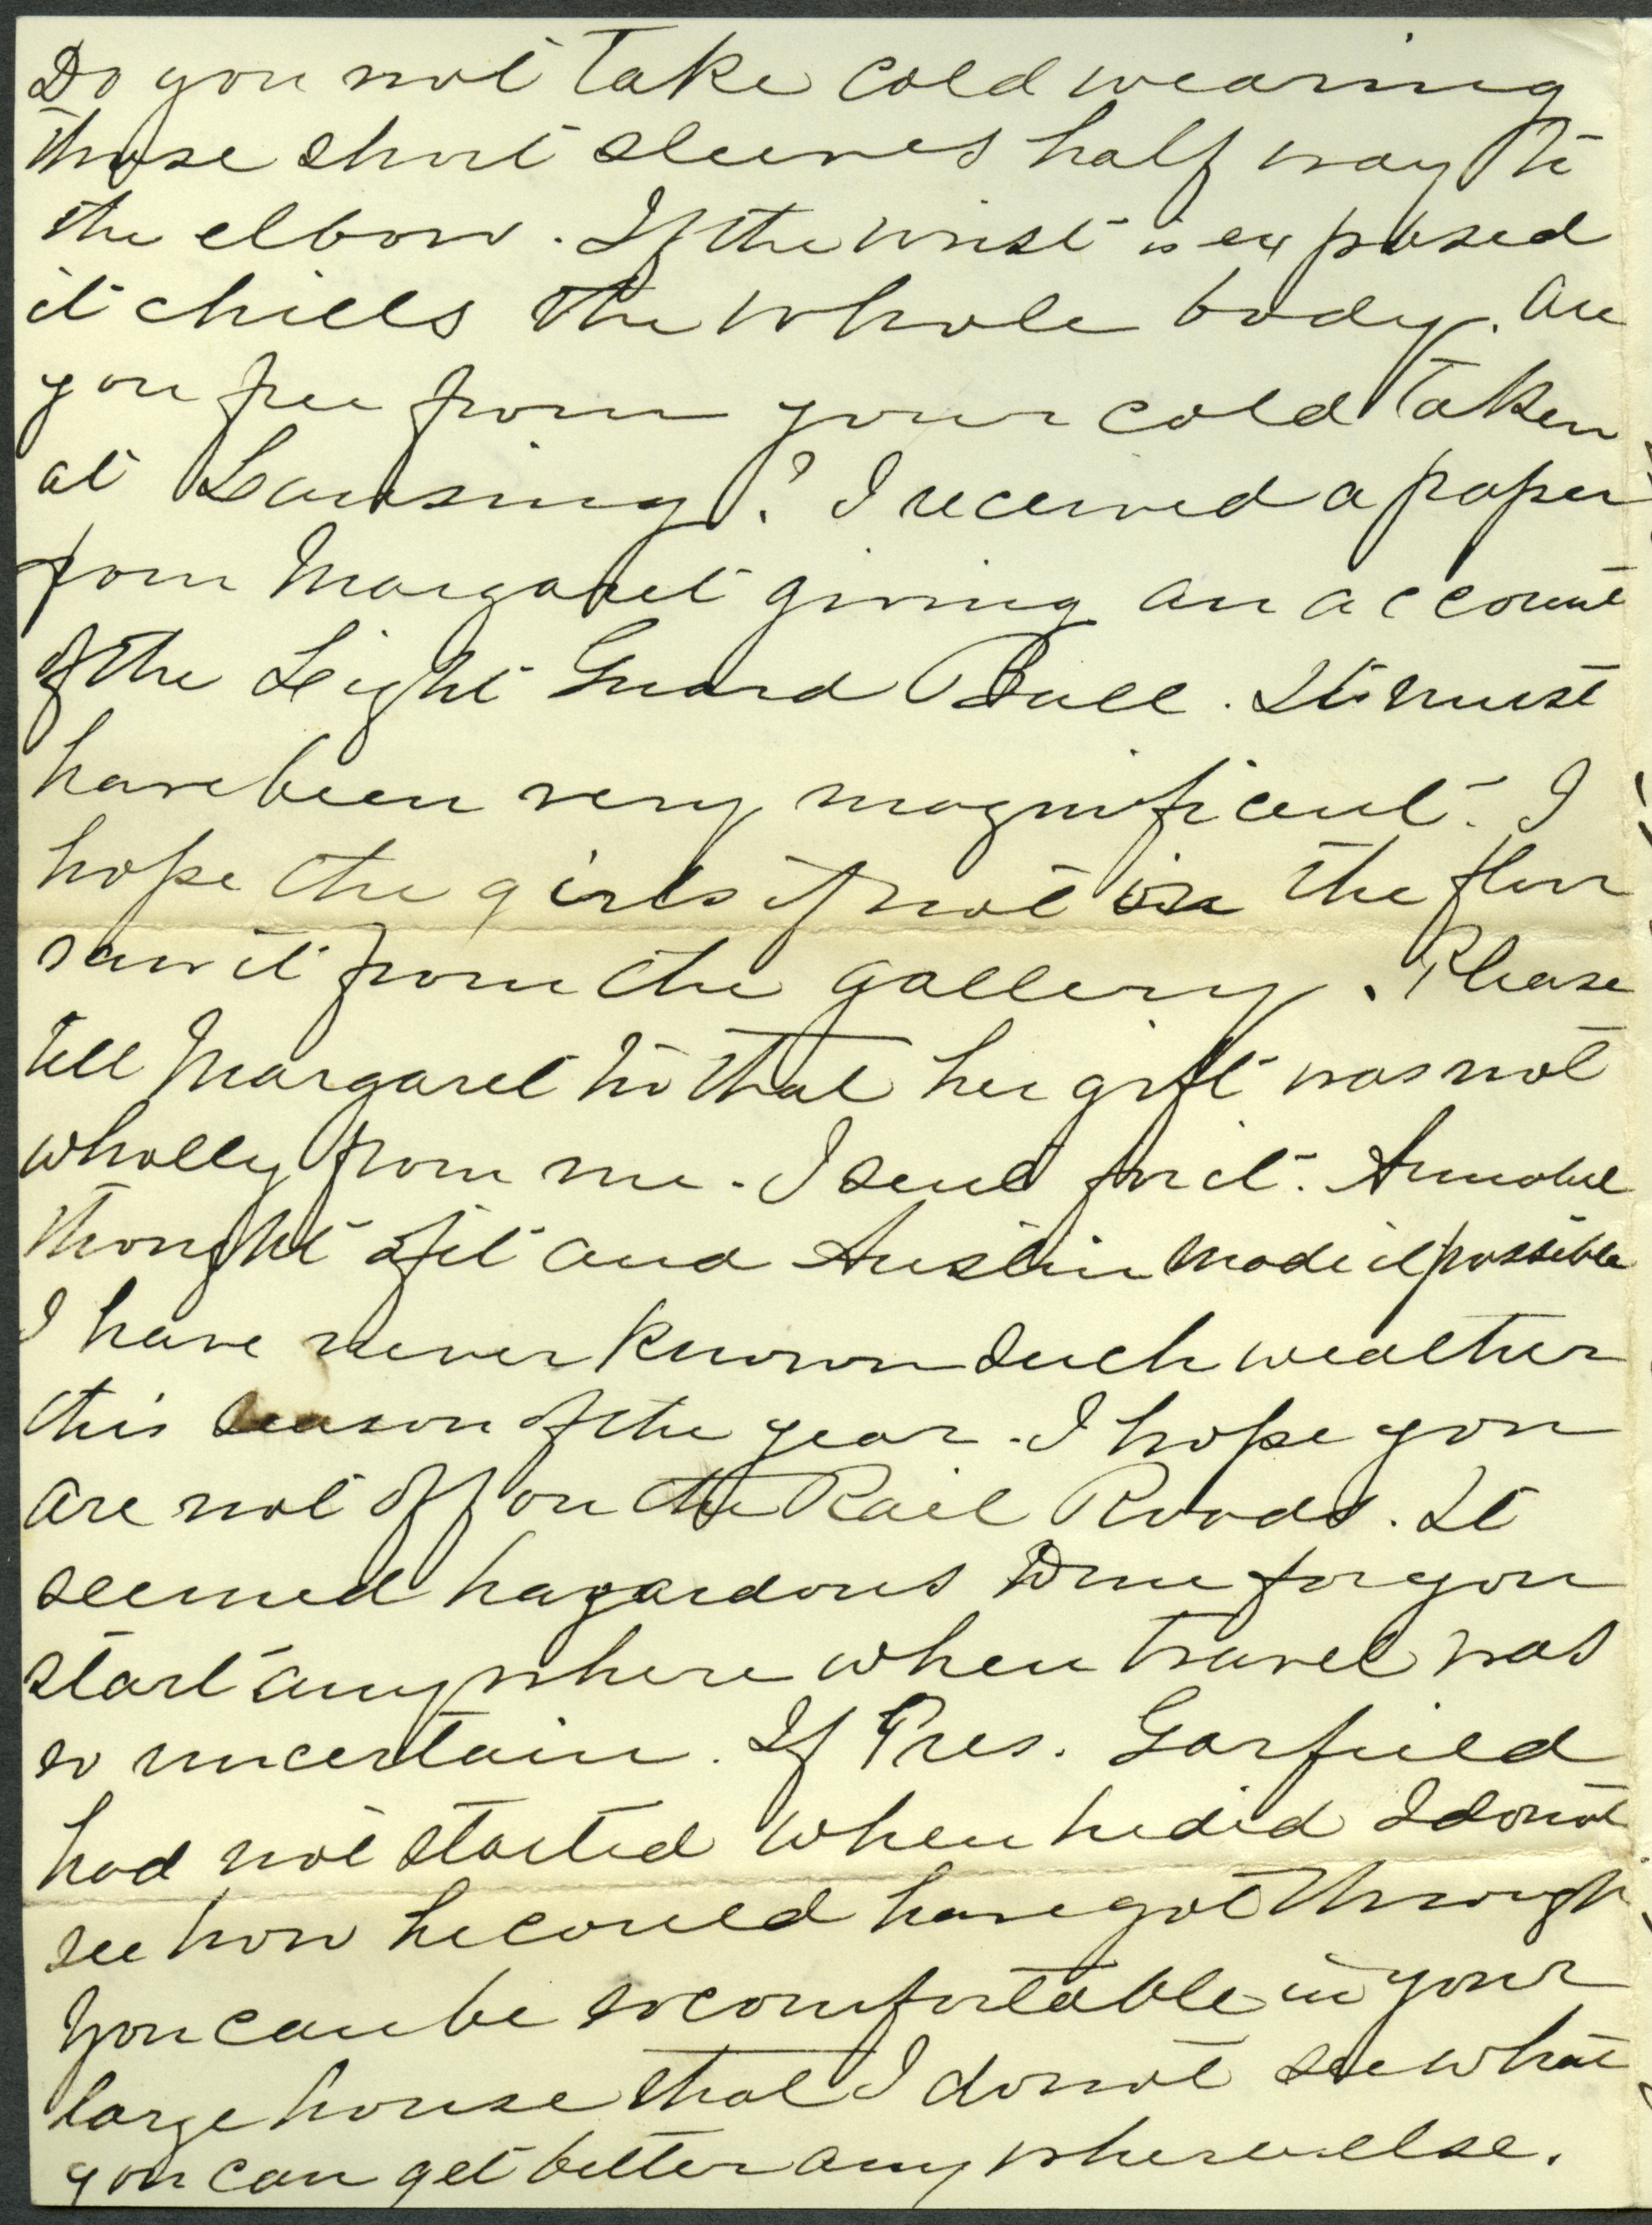 Do you not take cold wearing
those short sleeves half way to
the elbow. If the wrist is exposed
it chills the whole body. Are
you free from your cold taken
at Lansing? I received a paper
from Margaret giving an account
of the Light Guard Ball. It must
have been very magnificent. I
hope the girls if not on the floor
saw it from the gallery. Please
tell Margaret that her gift was not
wholly from me. I sent for it. Annabel
thought of it and Austin made it possible
I have never known such weather
this season of the year. I hope you
are not off on the Rail Roads. It
seemed hazardous to me for you
start any where when travel was
so uncertain. If Pres. Garfield
had not started when he did I do not
see how he could have got through
You can be so comfortable in your
large house that I do not see what
you can get better any where else.